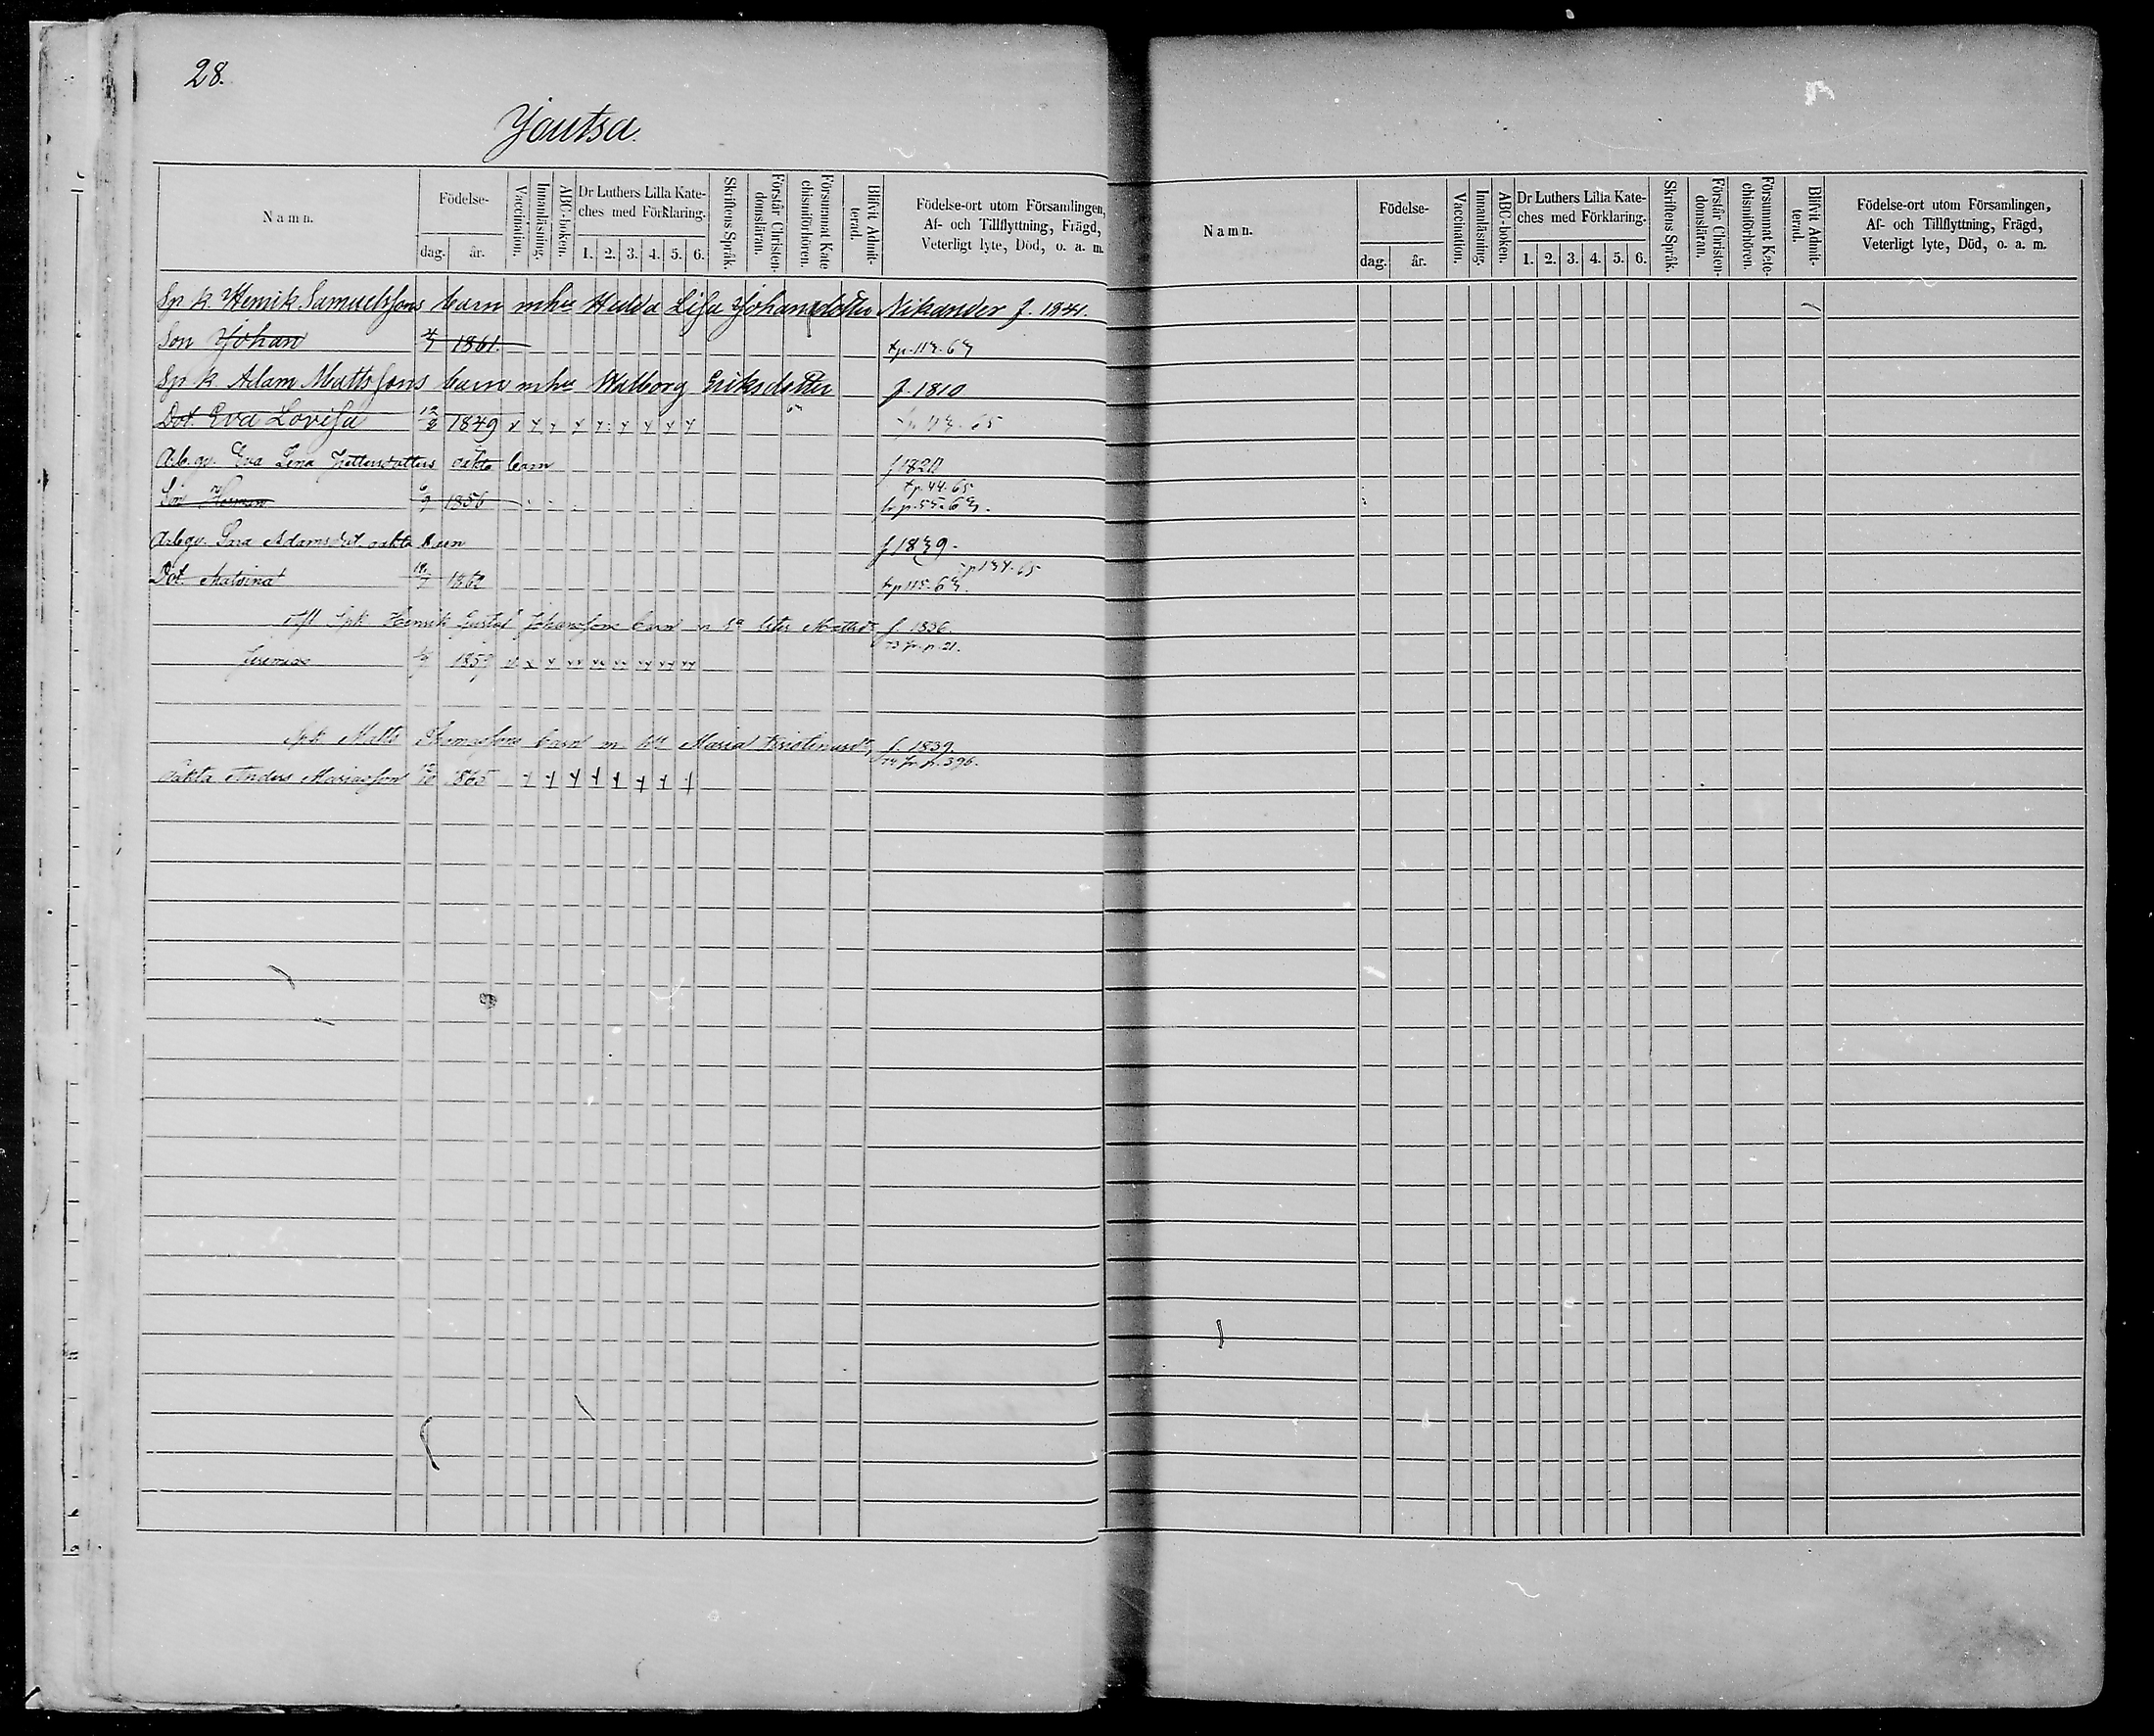 28.
Joutsa.
Namn.
Födelse-
dag.
år.
Vaccination.
Innanläsning.
ABC-boken.
Dr Luthers Lilla Kate-
ches med Förklaring.
1. 2. 3. 4. 5. 6.
Skriftens Språk.
Förstår Christen-
domsläran.
Försummat Kate
chismiförhören.
Blifvit Admit-
terad.
Födelse-ort utom Församlingen,
Af- och Tillflyttning, Frägd,
Veterligt lyte, Död, o. a. m.
Sp k. Henrik Samuelssons barn mhu Hedda Lisa Johansdotter Nikander f. 1841.
Son Johan 1861 tp. 113. 63
Sp k. Adam Mattssons barn mhu Walborg Eriksdotter f. 1810
Dot. Eva Lovisa 12/2 1849 x x x x x x x x x 65
Arb. qv. Eva Lena oäkta barn f 1820
tp. 44. 65
Son 6/9 1856 fr p. 55. 63.
Arb qv. Adamsdot. oäkta barn f 1839.
p 134. 65
Dot. 1862 fr p 115. 63.
Spk Henrik Gustaf Johanssons barn m f. 1836.
73 fr. p. 21.
Jeremias 1859
Spk. Matts barn m. hu Maria f. 1839.
fr. p. 396.
oäkta Anders Mariasson 1865 x x x x x x x x
Namn.
Födelse-
dag.
år.
Vaccination.
Innanläsning.
ABC-boken.
Dr Luthers Lilla Kate-
ches med Förklaring.
1. 2. 3. 4. 5. 6.
Skriftens Språk.
Förstår Christen-
domsläran.
Försummat Kate-
chismiförhören.
Blifvit Admit-
terad.
Födelse-ort utom Församlingen,
Af- och Tillflyttning, Frägd,
Veterligt lyte, Död, o. a. m.